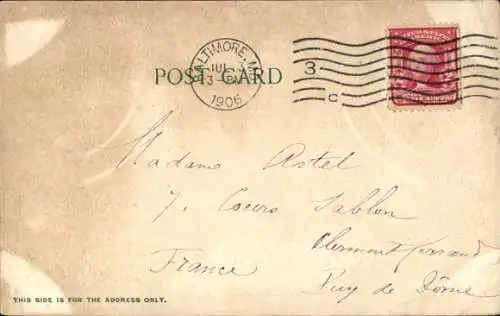 BALTIMORE, MD.
JUL 3
1906
3
C
POST CARD
UNITED STATES
OF AMERICA
Madame Astel
7. Cours Sablon
Clermont Ferrand
France
Puy de Dôme
THIS SIDE IS FOR THE ADDRESS ONLY.